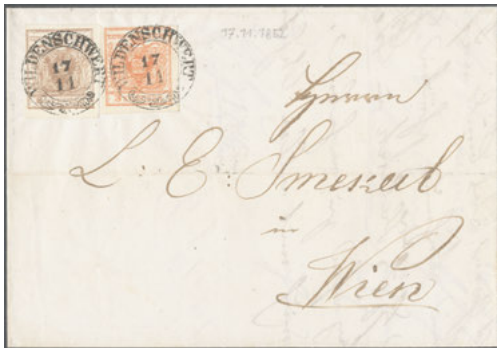 WILDENSCHWERT
17
11
WILDENSCHWERT
17
11
17.11.1852
Herrn
L. E. Smekal
in
Wien